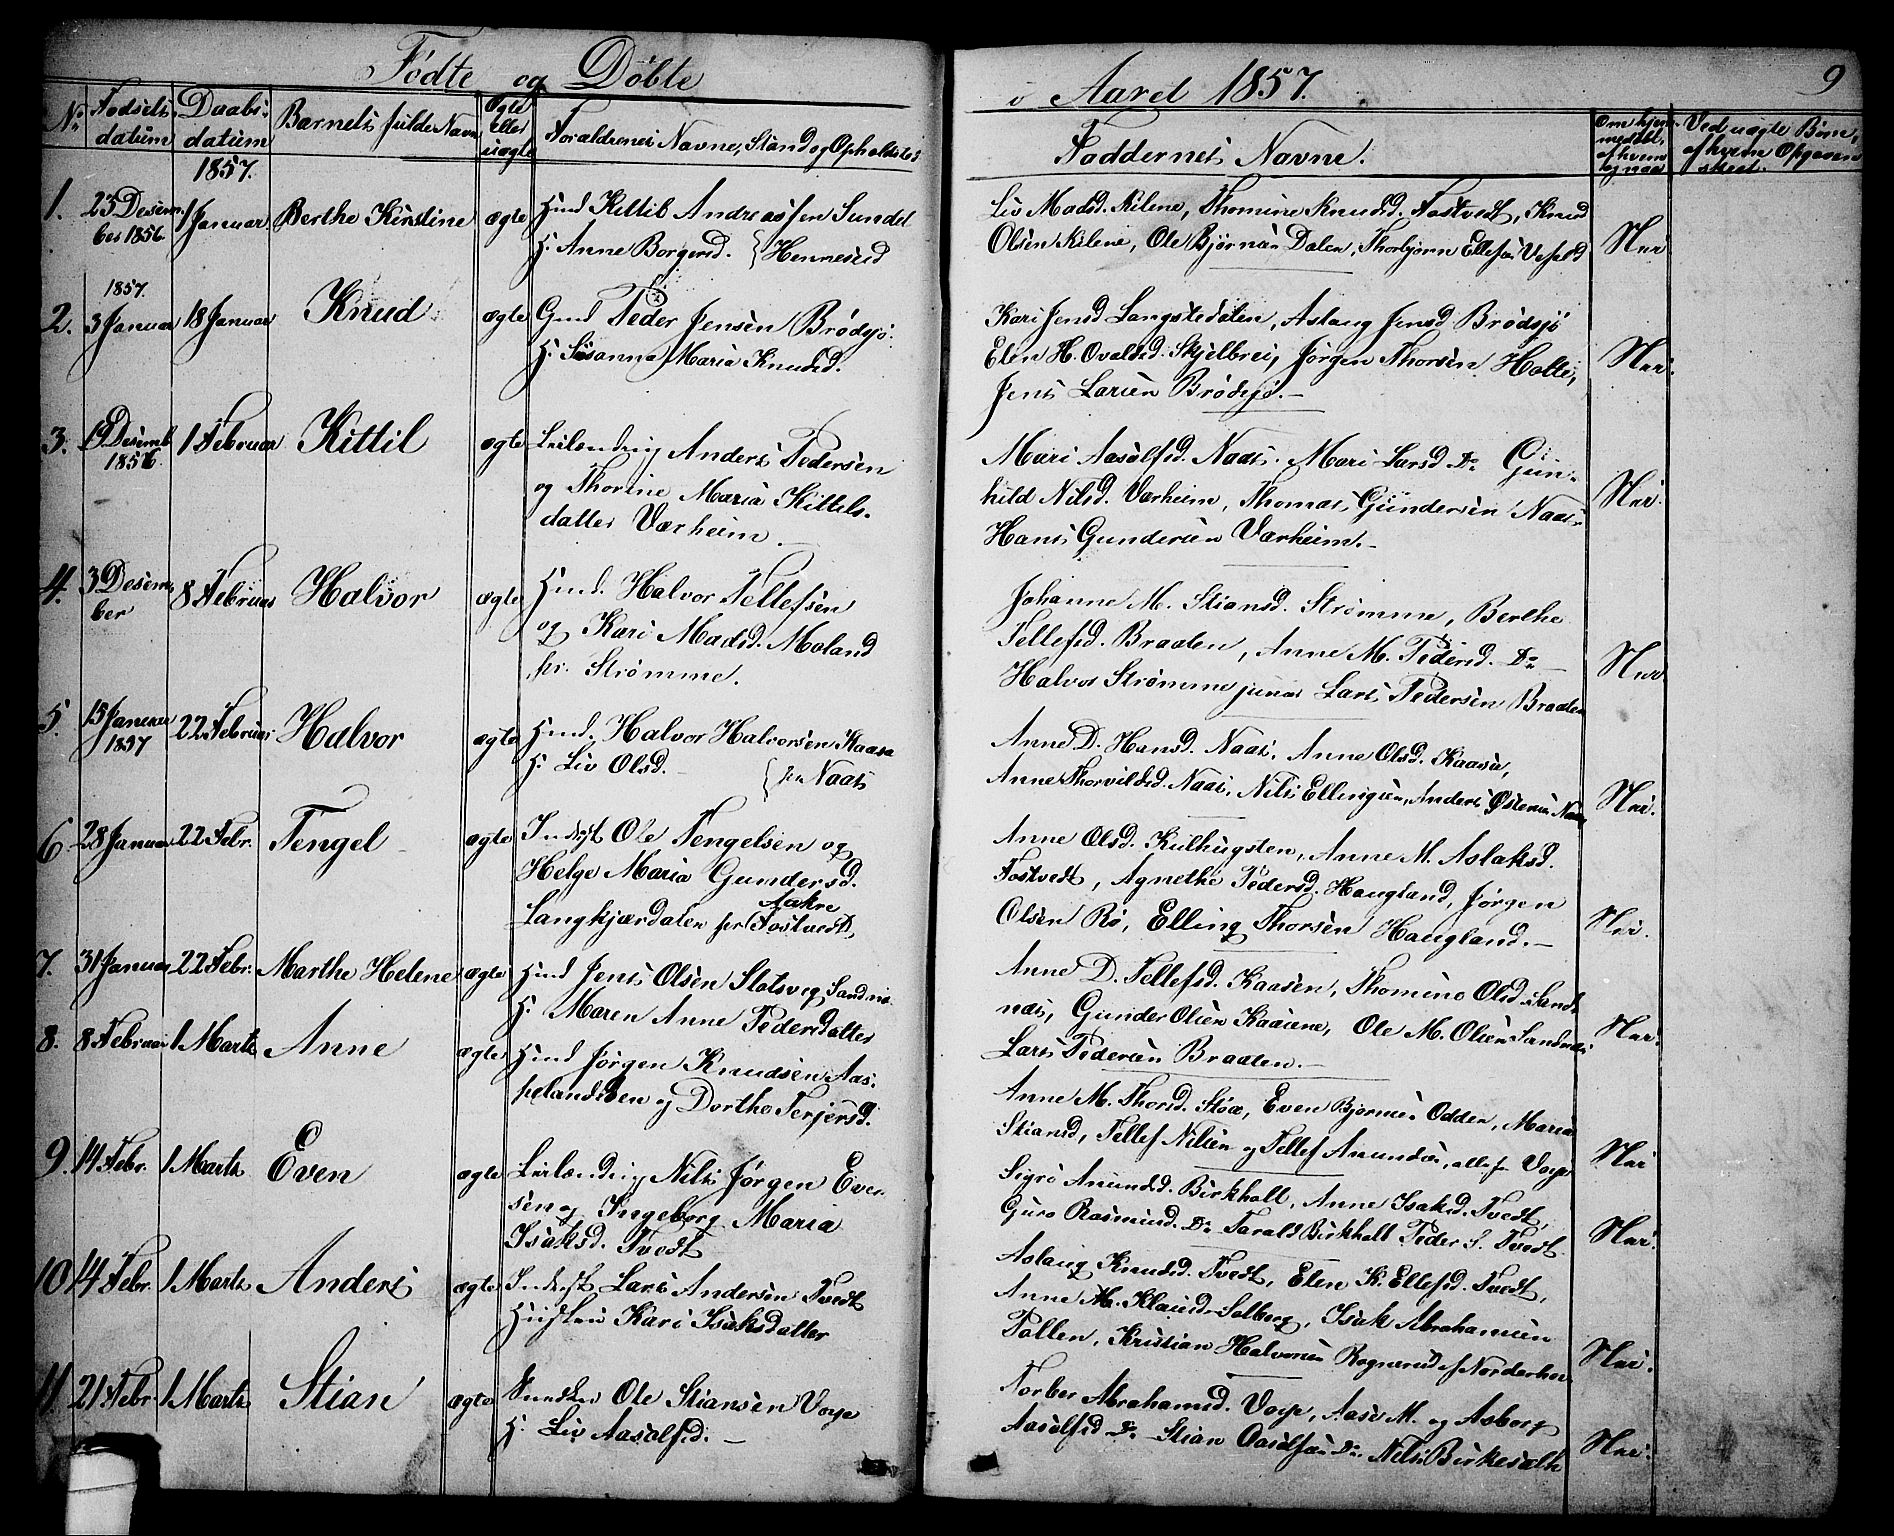 Fødte og Døbte
i Aaret 1857.
9
No.
Fødsels datum
Daabs datum
Barnets fulde Navn
Ægte eller uægte
Foraldrenes Navne, Stand og Opholdsted
Faddernes Navne.
Om hjemmedøbt, af hvem og naar
Ved uægte Børn, af hvem Opgaven skeet.
1857.
1. 23 Desember 1856. 1 Januar Berthe Kirstine ægte Hmd Kittil Andreassen Sundet
H. Anne Borgersd. Henneseid
Liv Madsd. Kilene, Thomine Knudsd. Fostvedt, Knud
Olsen Kilene, Ole Bjørnsen Dalen, Thorbjørn Ellefsen Vefald
Nei
1857.
2. 3 Januar 18 Januar Knud ægte Gmd Peder Jensen Brødsjø
H. Susanna Maria Knudsd.
Kari Jensd Langstedalen, Aslaug Jensd Brødsjø
Elen H. Ovaldsd. Skjelbrei, Jørgen Thorsen Holte,
Jens Larsen Brødsjø.
Nei.
3. 19 Desemb. 1856 1 Februar Kittil ægte Leilending Anders Pedersen
og Thorine Maria Kittels-
datter Værheim
Mari Aasolfsd. Naas. Mari Larsd Do Gun-
hild Nilsd. Værheim, Thomas Gundersen Naas
Hans Gundersen Værheim.
Nei.
4. 3 Desember 8 Februar Halvor ægte Hmd. Halvor Tellefsen
og Kari Madsd. Moland
fr. Strømme.
Johanne M. Stiansd. Strømme, Berthe
Tellefsd. Braaten, Anne M. Pedersd. Do
Halvor Strømme junior Lars Pedersen Braaten
Nei
5. 15 Januar 1857 22 Februar Halvor ægte Hmd. Halvor Halvorsen Kaasa
H. Liv Olsd. fra Naas
Anne D. Hansd. Naas, Anne Olsd. Kaasa,
Anne Thorvildsd. Naas, Nils Ellingsen, Anders Naas
Nei.
6. 28 Januar 22 Febr. Tengel ægte Inderst Ole Tengelsen og
Helge Maria Gundersd.
Aakre
Langkjærdalen for Fostvedt
Anne Olsd. Kulhugsten, Anne M. Aslaksd.
Fostvedt, Agnethe Pedersd. Haugland, Jørgen
Olsen Rø, Elling Thorsen Haugland.
Nei.
7. 31 Januar 22 Febr. Marthe Helene ægte Hmd Jens Olsen Slotsveg, Sandnæs
H. Maren Anne Pedersdatter
Anne D. Tellefsd. Kaasen, Thomine Olsd. Sand-
næs, Gunder Olsen Kaasene, Ole M. Olsen Sandnæs
Lars Pedersen Braaten.
Nei.
8. 8 Februar 1 Marts Anne ægte Hmd Jørgen Knudsen Aas-
og Dorthe Terjersd.
Anne M. Thorsd. Støa, Even Bjørnsen Odden, Maria
Stiansd, Tellef Nilsen og Tellef Amundsen, alle fr Voje
Nei
9. 14 Febr. 1 Marts Even ægte Leilending Nils Jørgen Even-
sen og Ingeborg Maria
Isaksd. Tvedt
Sigri Amundsd. Birkholt, Anne Isaksd. Tvedt,
Guro Rasmusd. Do Tarald Birkholt Peder S. Tvedt
Nei.
10. 14 Febr. 1 Marts Anders ægte Inderst Lars Andersen Tvedt
Hustru Kari Isaksdatter
Aslaug Knudsd. Tvedt, Elen K. Ellefsd. Tvedt,
Anne M. Klausd. Solberg, Isak Abrahamsen
Pollen, Kristian Halvorsen Rognerud af Norderhov
Nei.
11. 21 Febr. 1 Marts Stian ægte Snedker Ole Stiansen Voje
H. Liv Aasolfsd.
Norber Abrahamsd. Voje, Aase M. og Asborg
Aasolfsd Do Stian Aasolfsen Do. Nils
Nei.